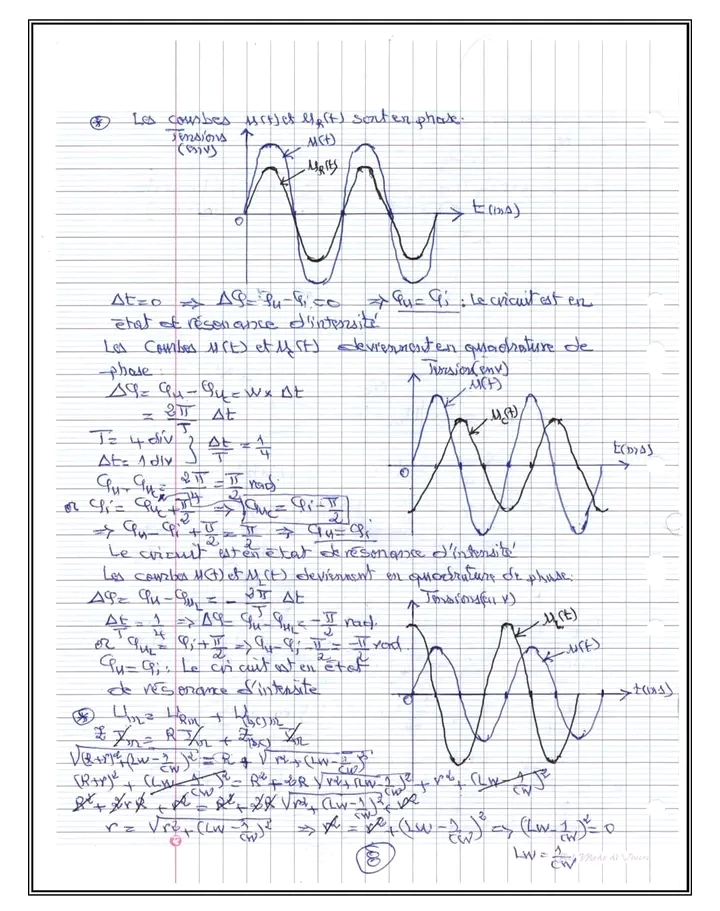 * Les courbes u(t) et u_R(t) sont en phase.
Tensions
(en V)
u(t)
u_R(t)
t(ms)
0
Δt=0 ⇒ Δφ=φu-φi=0 ⇒ φu=φi : Le circuit est en
état de résonance d'intensité
Les courbes u(t) et u_c(t) deviennent en quadrature de
phase :
Tension(en V)
u(t)
u_c(t)
t(ms)
0
Δφ= φu-φuc= w× Δt
= 2π/T Δt
T= 4 div } Δt/T = 1/4
Δt= 1 div
φu-φuc= 2π/4 = π/2 rad
or φi= φuc+π/2 ⇒ φuc= φi-π/2
⇒ φu-φi+π/2=π/2 ⇒ φu=φi
Le circuit est en état de résonance d'intensité
Les courbes u(t) et u_L(t) deviennent en quadrature de phase.
Δφ= φu-φuL= -2π/T Δt
Tensions(en V)
u_L(t)
u(t)
t(ms)
0
Δt/T=1/4 ⇒ Δφ= φu-φuL=-π/2 rad.
or φuL= φi+π/2 ⇒ φu-φi-π/2=-π/2 rad.
φu=φi : Le circuit est en état
de résonance d'intensité
* Um= URm + U(b,c)m
Z Im= R Im + Z(b,c) Im
√((R+r)²+(Lw-1/Cw)²)=R+√(r²+(Lw-1/Cw)²)
(R+r)²+(Lw-1/Cw)²= R²+2R√(r²+(Lw-1/Cw)²)+r²+(Lw-1/Cw)²
R²+2rR+r²=R²+2R√(r²+(Lw-1/Cw)²)+r²
r=√(r²+(Lw-1/Cw)²) ⇒ r²=r²+(Lw-1/Cw)² ⇒ (Lw-1/Cw)²=0
Lw=1/Cw
8